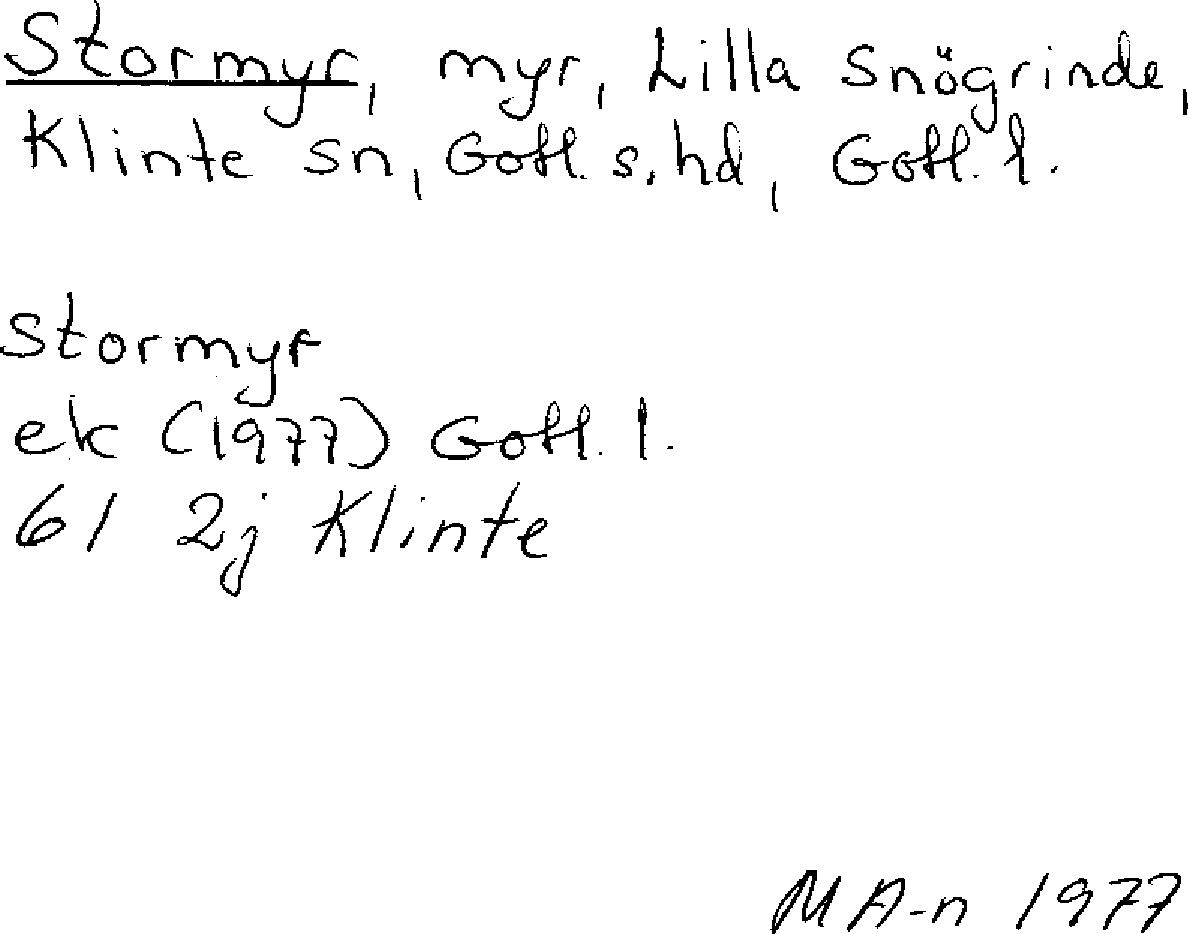 Stormyr, myr, Lilla Snögrinde,
Klinte sn, Gotl. s. hd, Gotl. l.
Stormyr
ek (1977) Gotl. l.
61 2j Klinte
MA-n 1977